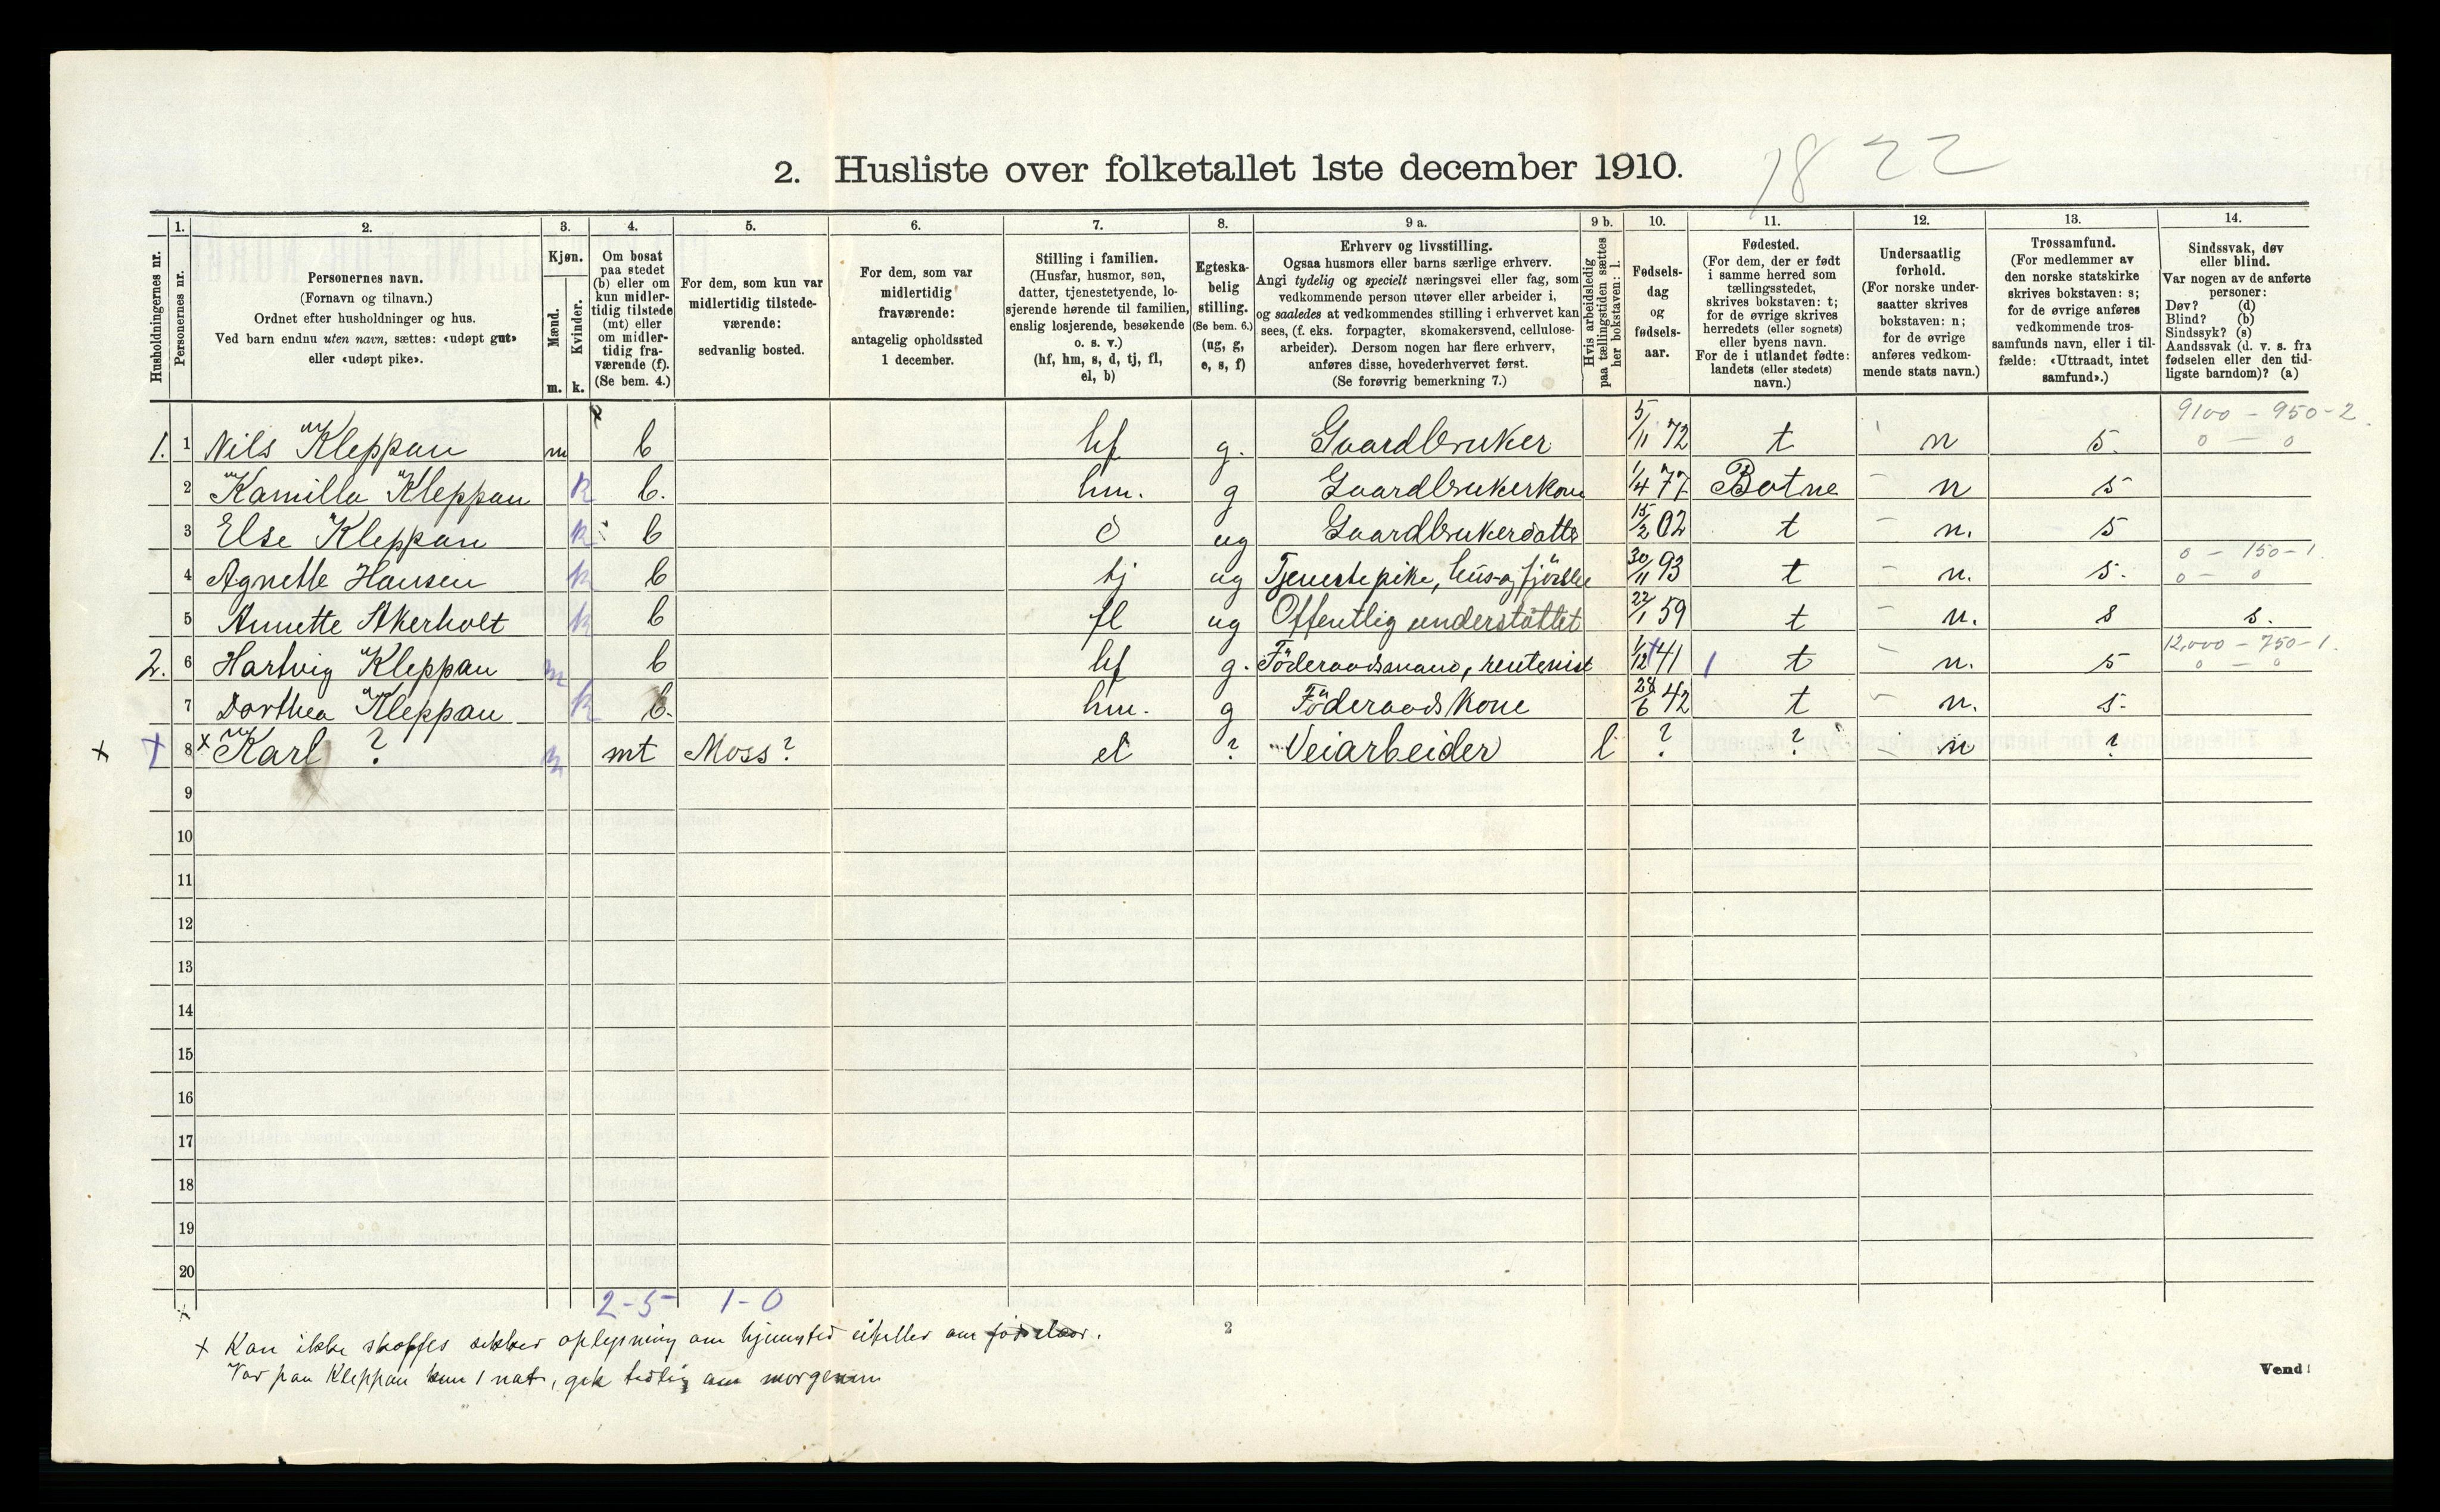 2. Husliste over folketallet 1ste december 1910.
1822
Husholdningernes nr.
1. Personernes nr.
2. Personernes navn.
(Fornavn og tilnavn.)
Ordnet efter husholdninger og hus.
Ved barn endnu uten navn, sættes: «udøpt gut»
eller «udøpt pike».
3. Kjøn.
Mænd. m.
Kvinder. k.
4. Om bosat
paa stedet
(b) eller om
kun midler-
tidig tilstede
(mt) eller
om midler-
tidig fra-
værende (f).
(Se bem. 4.)
5. For dem, som kun var
midlertidig tilstede-
værende:
sedvanlig bosted.
6. For dem, som var
midlertidig
fraværende:
antagelig opholdssted
1 december.
7. Stilling i familien.
(Husfar, husmor, søn,
datter, tjenestetyende, lo-
sjerende hørende til familien,
enslig losjerende, besøkende
o. s. v.)
(hf, hm, s, d, tj, fl,
el, b)
8. Egteska-
belig
stilling.
(Se bem. 6.)
(ug, g,
e, s, f)
9 a. Erhverv og livsstilling.
Ogsaa husmors eller barns særlige erhverv.
Angi tydelig og specielt næringsvei eller fag, som
vedkommende person utøver eller arbeider i,
og saaledes at vedkommendes stilling i erhvervet kan
sees, (f. eks. forpagter, skomakersvend, cellulose-
arbeider). Dersom nogen har flere erhverv,
anføres disse, hovederhvervet først.
(Se forøvrig bemerkning 7.)
9 b. Hvis arbeidsledig
paa tællingstiden sættes
her bokstaven: l.
10. Fødsels-
dag
og
fødsels-
aar.
11. Fødested.
(For dem, der er født
i samme herred som
tællingsstedet,
skrives bokstaven: t;
for de øvrige skrives
herredets (eller sognets)
eller byens navn.
For de i utlandet fødte:
landets (eller stedets)
navn.)
12. Undersaatlig
forhold.
(For norske under-
saatter skrives
bokstaven: n;
for de øvrige
anføres vedkom-
mende stats navn.)
13. Trossamfund.
(For medlemmer av
den norske statskirke
skrives bokstaven: s;
for de øvrige anføres
vedkommende tros-
samfunds navn, eller i til-
fælde: «Uttraadt, intet
samfund».)
14. Sindssvak, døv
eller blind.
Var nogen av de anførte
personer:
Døv? (d)
Blind? (b)
Sindssyk? (s)
Aandssvak (d. v. s. fra
fødselen eller den tid-
ligste barndom)? (a)
9100 - 950-2
1. 1 Nils Kleppan m b hf g. Gaardbruker 5/11 72 t n s. 0 — 0
2 Kamilla Kleppan k b. hm. g Gaardbrukerkone 1/4 77 Botne n s
3 Else Kleppan k b d ug Gaardbrukerdatter 15/2 02 t n. s
0 - 150-1.
4 Agnette Hansen k b tj ug Tjenestepike, hus-og fjösstel 30/11 93 t n. s. 0 - 0
5 Annette Akerholt k b fl ug Offentlig understöttet 22/1 59 t n. s s.
12,000 - 750-1.
2. 6 Hartvig Kleppan m b hf g. Föderaadsmand, rentenist 1/12 41 t n. s 0 - 0
7 Dorthea Kleppan k b. hm. g Föderaadskone 28/6 42 t n. s.
× 8 × Karl ? m mt Moss? el ? Veiarbeider l ? ? n ?
9
10
11
12
13
14
15
16
17
18
19
20
2-5 1-0
× Kan ikke skaffes sikker oplysning om hjemsted eiheller om födselaar.
Var paa Kleppan kun 1 nat, gik tidlig om morgenen
2
Vend!